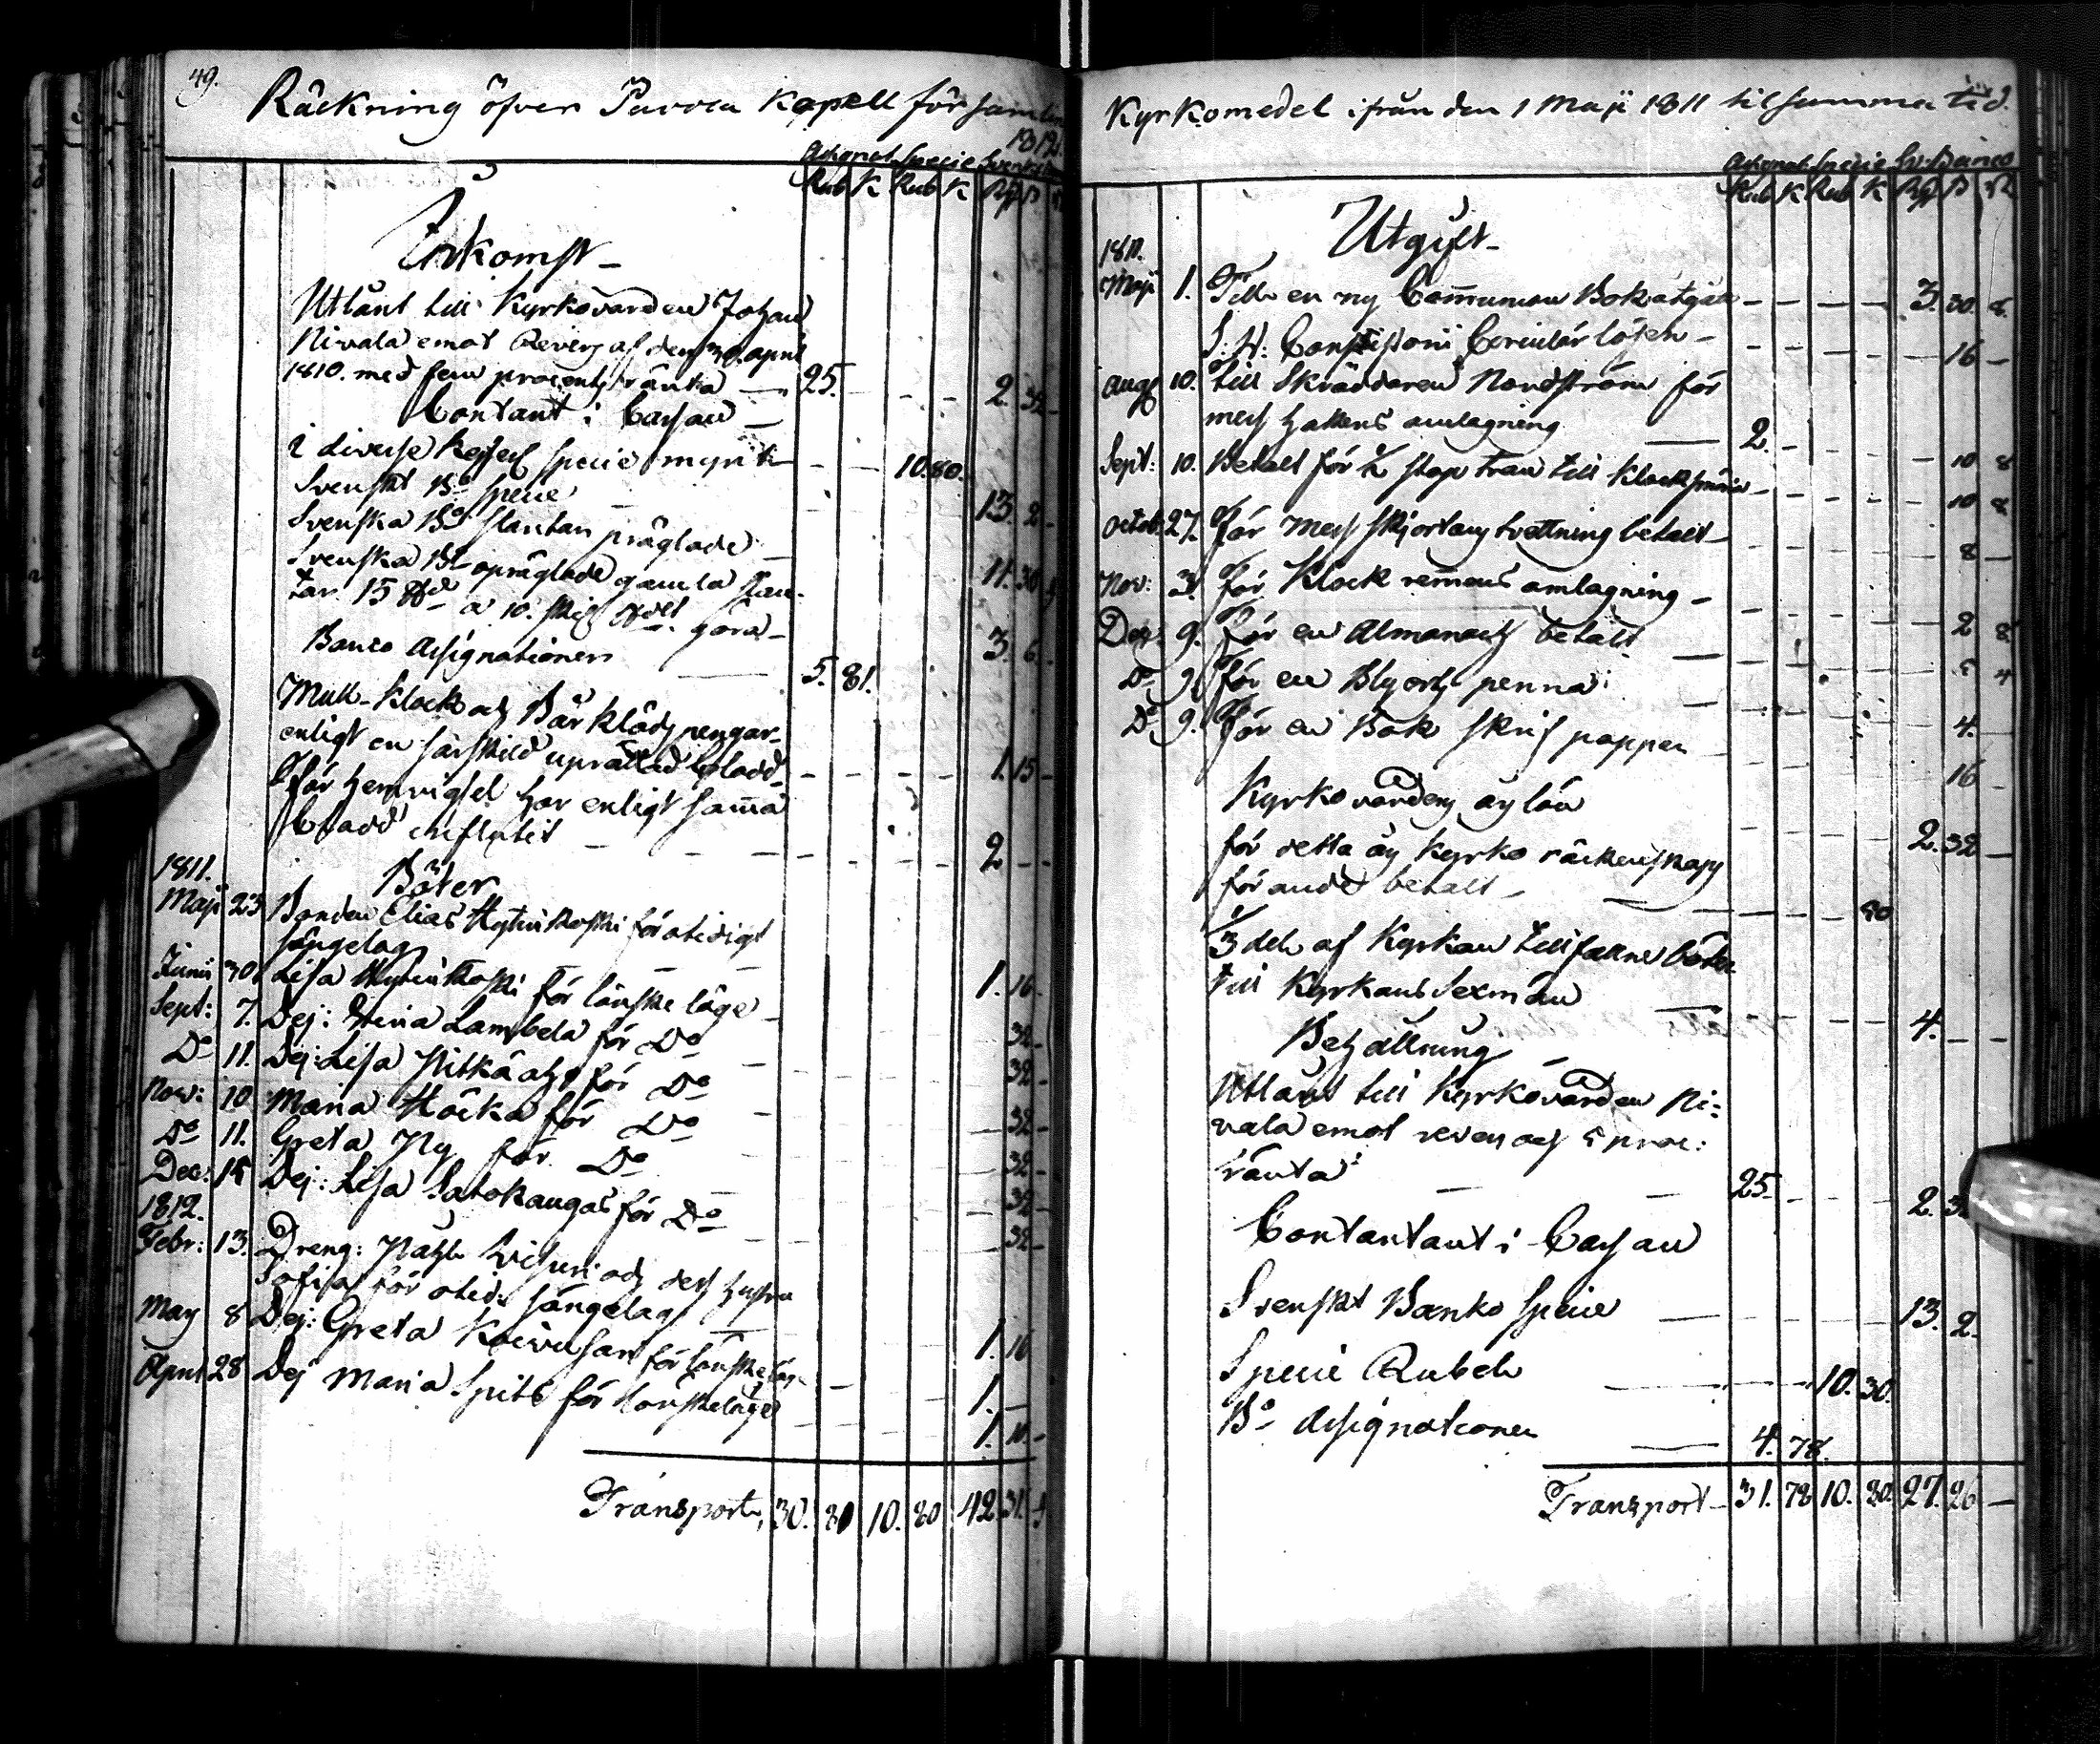 49.
Räckning öfver Pavola Kapell församlin
1812.
Assignat Specie Svenskt
Rub K Rub K Rd ß
Inkomst
Utlånt till Kyrkovärden Johan
Nivala emot Revers af den 30 april
1810. med fem procents ränta — 25. — — — 2. 32 —
Contant i Cassan —
i diverse Keyserl specie mynt — — 10. 80.
Svenskt Bo Specie — 13. 2 —
Svenska Bo slantar präglade —
Svenska Bo opräglade gamla slan- 11. 30
tar 15 a 10. göra — 3. 6.
Banco Assignationer — 5. 81.
Mull- Klock och Bårklädspengar
enligt en särskild uprättad bladd — — — — 1. 15 —
För hemvigsel har enligt samma
bladd influtit — — — — — 2 — —
1811. Böter
Maji 23 Bonden Elias för otidigt
sängelag — — — 1. 16 —
Junii 30. Lisa för lönske läge — 32 —
Sept: 7. Dej: Stina Lambela för Do — 32 —
Do 11. Dej: Lisa för Do — 32 —
Nov: 10 Maria Höcka för Do — 32 —
Do 11. Greta Ny för Do — 32 —
Dec: 15 Dej: Lisa Satokangas för Do — 32 —
1812.
Febr: 13. Dreng: och dess hustru
Sofia för otid: sängelag — 1. 16
May 8 Dej: Greta för lönskeläge — 1. —
April 28 Dej Maria Spits för lönskeläge — 1. 10. —
Transport, 30. 81 10. 80 42 31.
Kyrkomedel ifrån den 1 Maji 1811 til samma tid.
Assignat Specie Sv: Banco
Rub K Rub K Rd ß
Utgift —
1811.
Maji 1. Till en ny Communion Bok — — — — 3. 30. 8.
Consistorii Circulär lösen — — — — — 16 —
Aug 10. till Skräddaren Nordström för
mess hakens omlagning — 2. —
Sept: 10. Betalt för ½ stop tran till Klocksmörja — — — — 10 8
Octob: 27. för mess skjortans tvättning betalt — — — — 10 8
Nov: 3. för Klock remmens omlagning — — — — — 8 —
Dec: 9. för en Almanach betalt — — — — 2 8
Do 9. för en Blyerts penna — — — — 5 4
Do 9. för en Bok skrif papper — — — — 4. —
Kyrko vårdens års lön — 16 —
för detta års Kyrko räckenskaps — — — — 2. 32 —
förande betalt — — — — 50
1/3 del af Kyrkan tillfallne böter
till Kyrkans Sexman — — — 4. — —
Behållning —
Utlånt till Kyrkovärden Ni:
vala emot revers och 5 proc:
ränta — — 25. — — — 2.
Contantant i Cassan
Svenskt Banko Specie — — — — 13. 2.
Specie Rubel — — — 10. 30.
Bo Assignationer — 4. 78.
Transport — 31. 78 10. 30. 27. 26 —